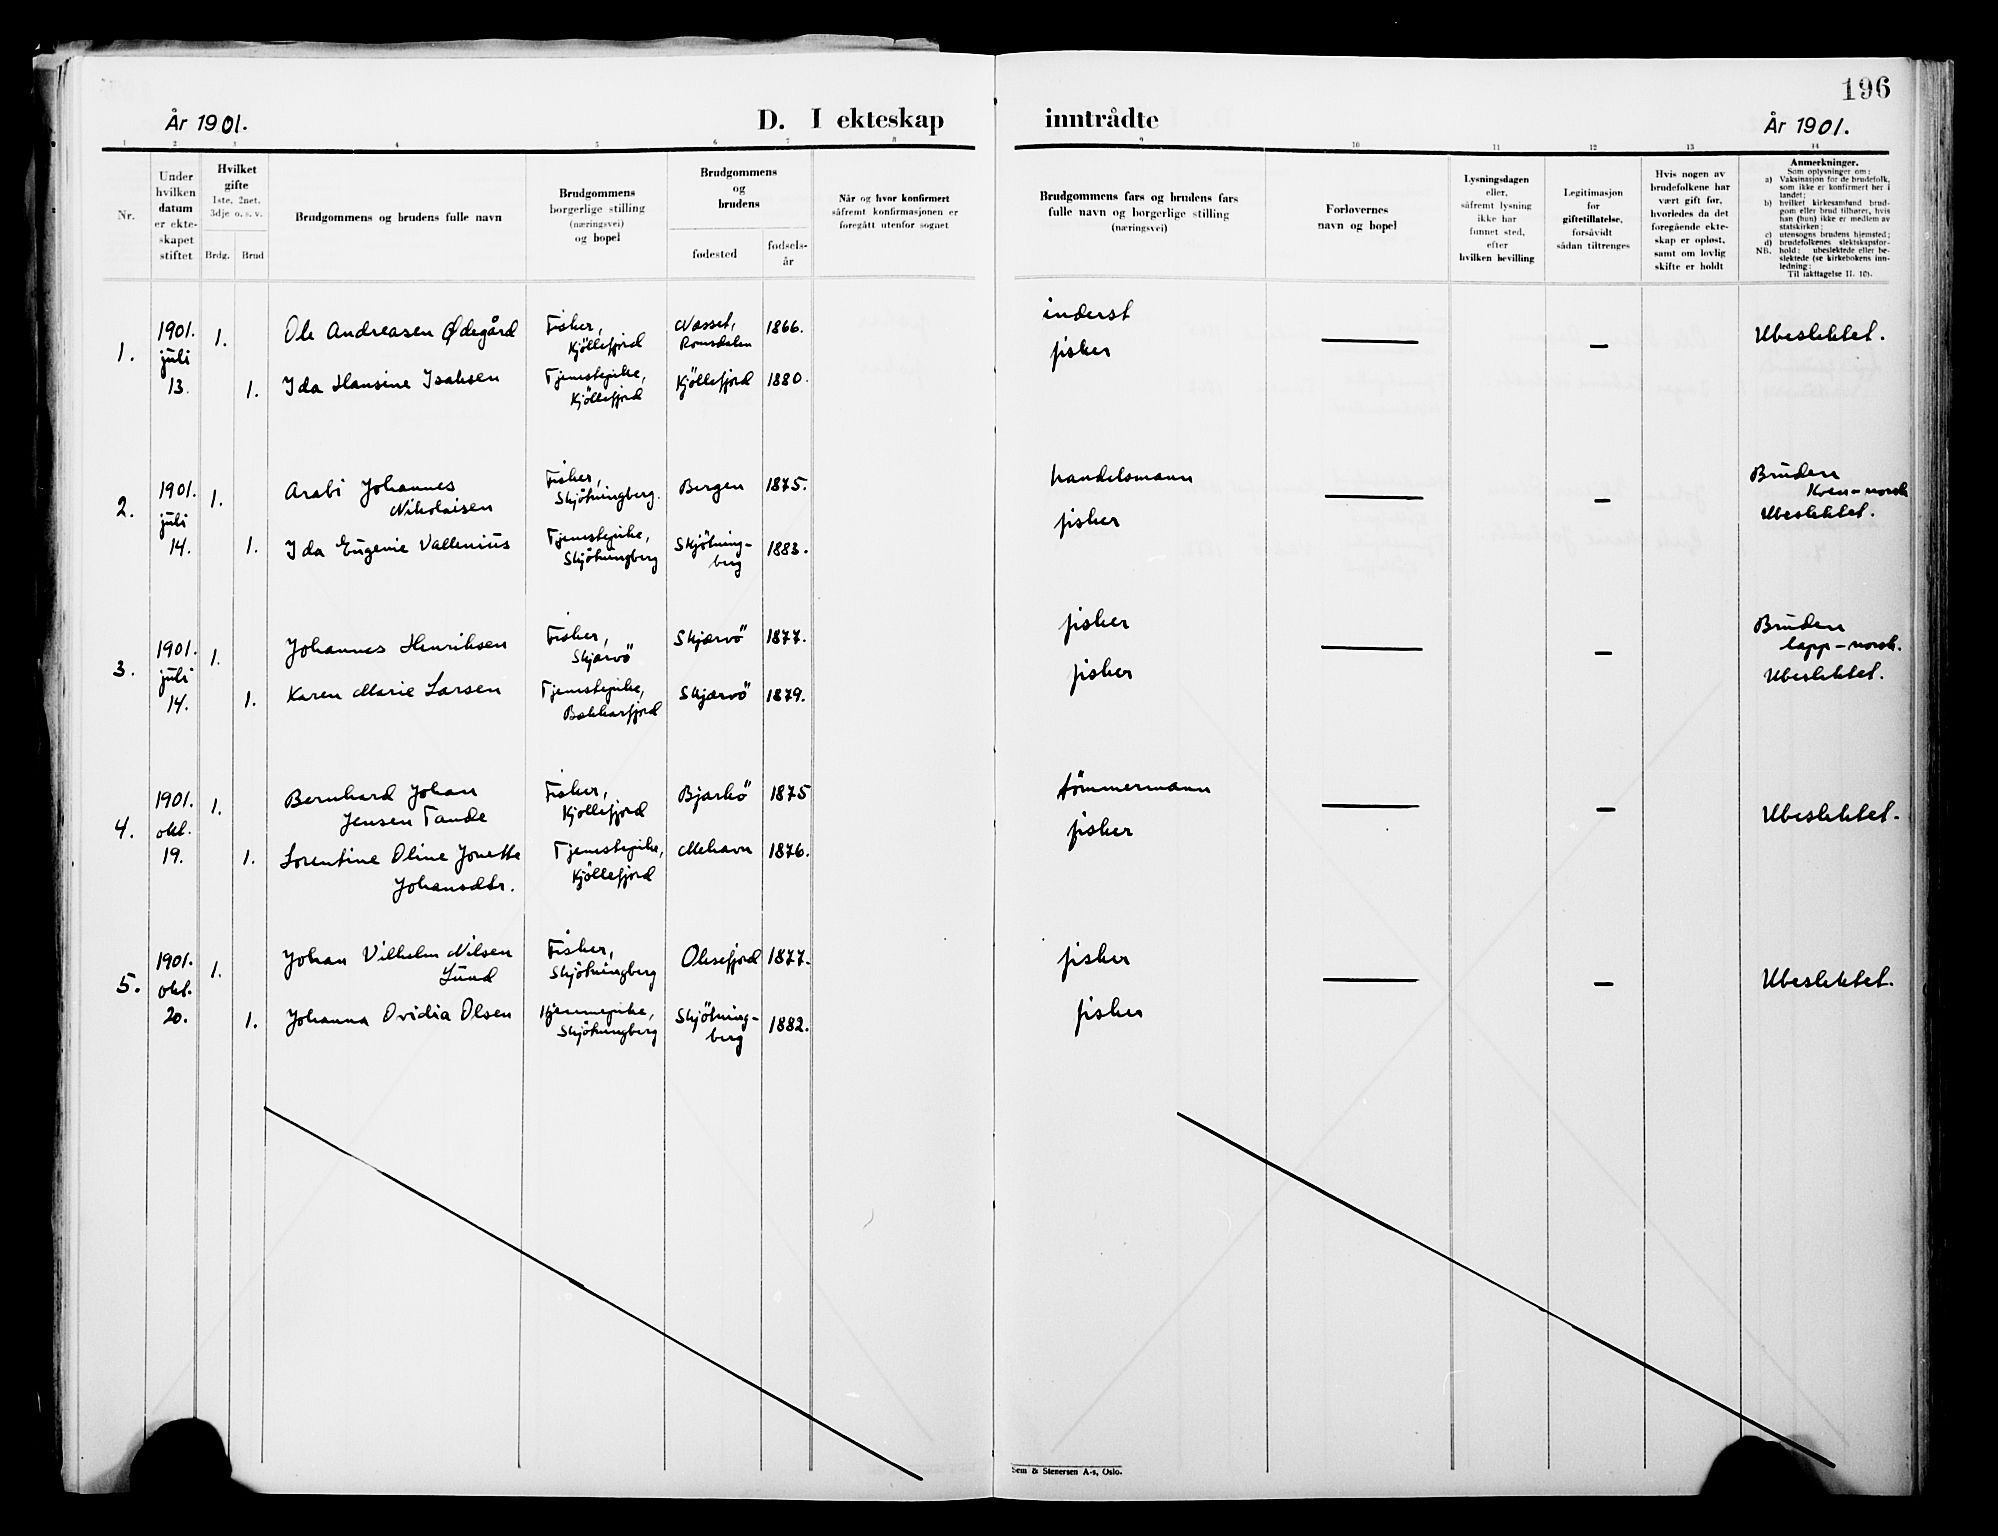 196
År 1901.
D. I ekteskap
inntrådte
År 1901.
1 2 3 4 5 6 7 8
9 10 11 12 13 14
Nr.
Under
hvilken
datum
er ekte-
skapet
stiftet
Hvilket
gifte
1ste, 2net,
3dje o. s. v.
Brdg. Brud
Brudgommens og brudens fulle navn
Brudgommens
borgerlige stilling
(næringsvei)
og bopel
Brudgommens
og
brudens
fødested
fødsels-
år
Når og hvor konfirmert
såfremt konfirmasjonen er
foregått utenfor sognet
Brudgommens fars og brudens fars
fulle navn og borgerlige stilling
(næringsvei)
Forlovernes
navn og bopel
Lysningsdagen
eller,
såfremt lysning
ikke har
funnet sted,
efter
hvilken bevilling
Legitimasjon
for
giftetillatelse,
forsåvidt
sådan tiltrenges
Hvis nogen av
brudefolkene har
vært gift før,
hvorledes da det
foregående ekte-
skap er opløst,
samt om lovlig
skifte er holdt
Anmerkninger.
Som oplysninger om:
a) Vaksinasjon for de brudefolk,
som ikke er konfirmert her i
landet;
b) hvilket kirkesamfund brud-
gom eller brud tilhører, hvis
han (hun) ikke er medlem av
statskirken;
c) utensogns brudens hjemsted;
d) brudefolkenes slektskapsfor-
NB. hold: ubeslektede eller be-
slektede (se kirkebokens inn-
ledning:
Til iakttagelse II. 10).
1.
1901.
juli
13.
1.
Ole Andreasen Ødegård
Fisker,
Kjöllefjord
Næsset,
Romsdalen
1866.
inderst
Ubeslektet.
1.
Ida Hansine Isaksen
Tjenestepike,
Kjöllefjord
Kjöllefjord
1880.
fisker
2.
1901.
juli
14.
1.
Arabi Johannes
Nikolaisen
Fisker,
Skjötningberg.
Bergen
1875.
handelsmann
Bruden
kven-norsk
Ubeslektet.
1.
Ida Eugenie Vallenius
Tjenestepike,
Skjötningberg
Skjötning-
berg
1883.
fisker
3.
1901.
juli
14.
1.
Johannes Henriksen
Fisker,
Skjærvö
Skjærvö
1877.
fisker
Bruden
lapp-norsk.
Ubeslektet.
1.
Karen Marie Larsen
Tjenestepike,
Bakkarfjord
Skjærvö
1879.
fisker
4.
1901.
okt.
19.
1.
Bernhard Johan
Jensen Tande
Fisker,
Kjöllefjord
Bjarkö
1875
tömmermann
Ubeslektet.
1.
Lorentine Oline Jonette
Johansdtr.
Tjenestepike,
Kjöllefjord
Mehavn
1876.
fisker
5.
1901.
okt.
20.
1.
Johan Vilhelm Nilsen
Lund
Fisker,
Skjötningberg
Oksefjord
1877.
fisker
Ubeslektet.
1.
Johanna Ovidia Olsen
Hjemmepike,
Skjötningberg
Skjötning-
berg
1882.
fisker
Sem & Stenersen A-s, Oslo.